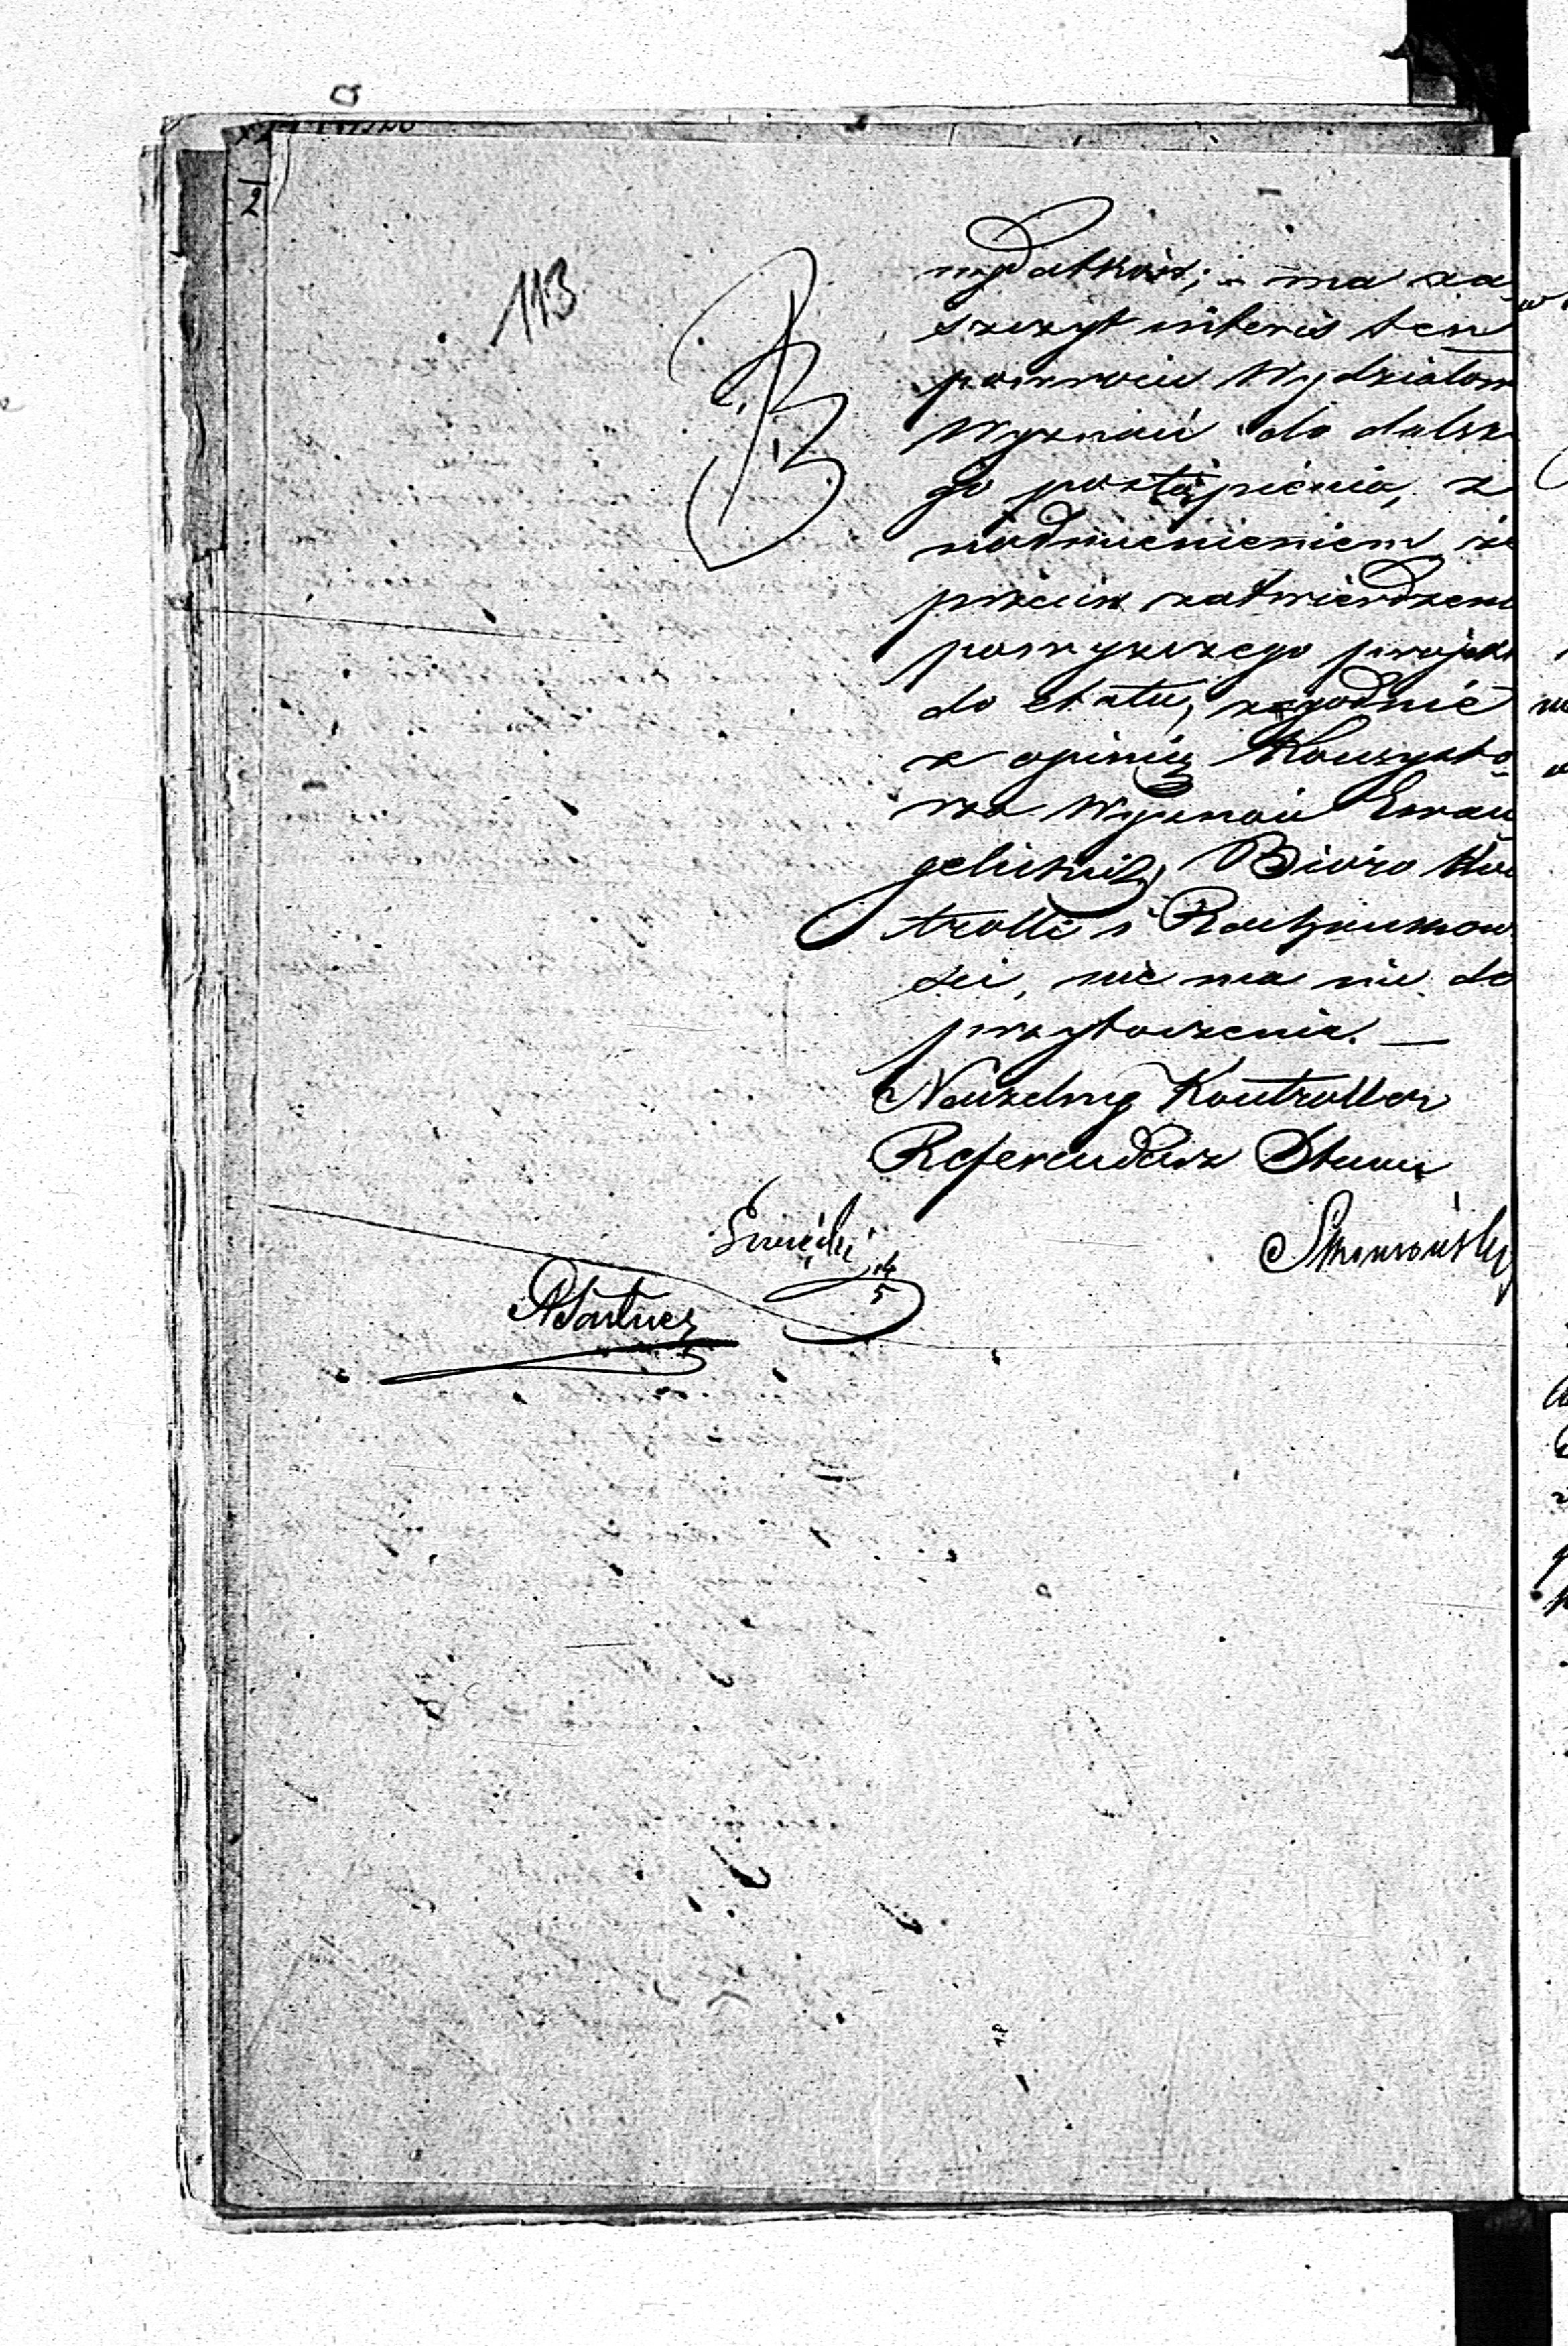 113
wydatków; – ma za
szczyt interes ten
powrócić Wydziałow
Wyznań do dalsze
go postąpienia, z
nadmienieniem, że
przeciw zatwierdzeni
powyższego projekt
do etatu, zgodnie
z opinią Konsysto
rza Wyznań Ewan
gelickich, Biuro Kon
trolli i Rachunkow
ści, nie ma nic do
przytoczenia. —
Naczelny Kontroller
Referendarz Stanu